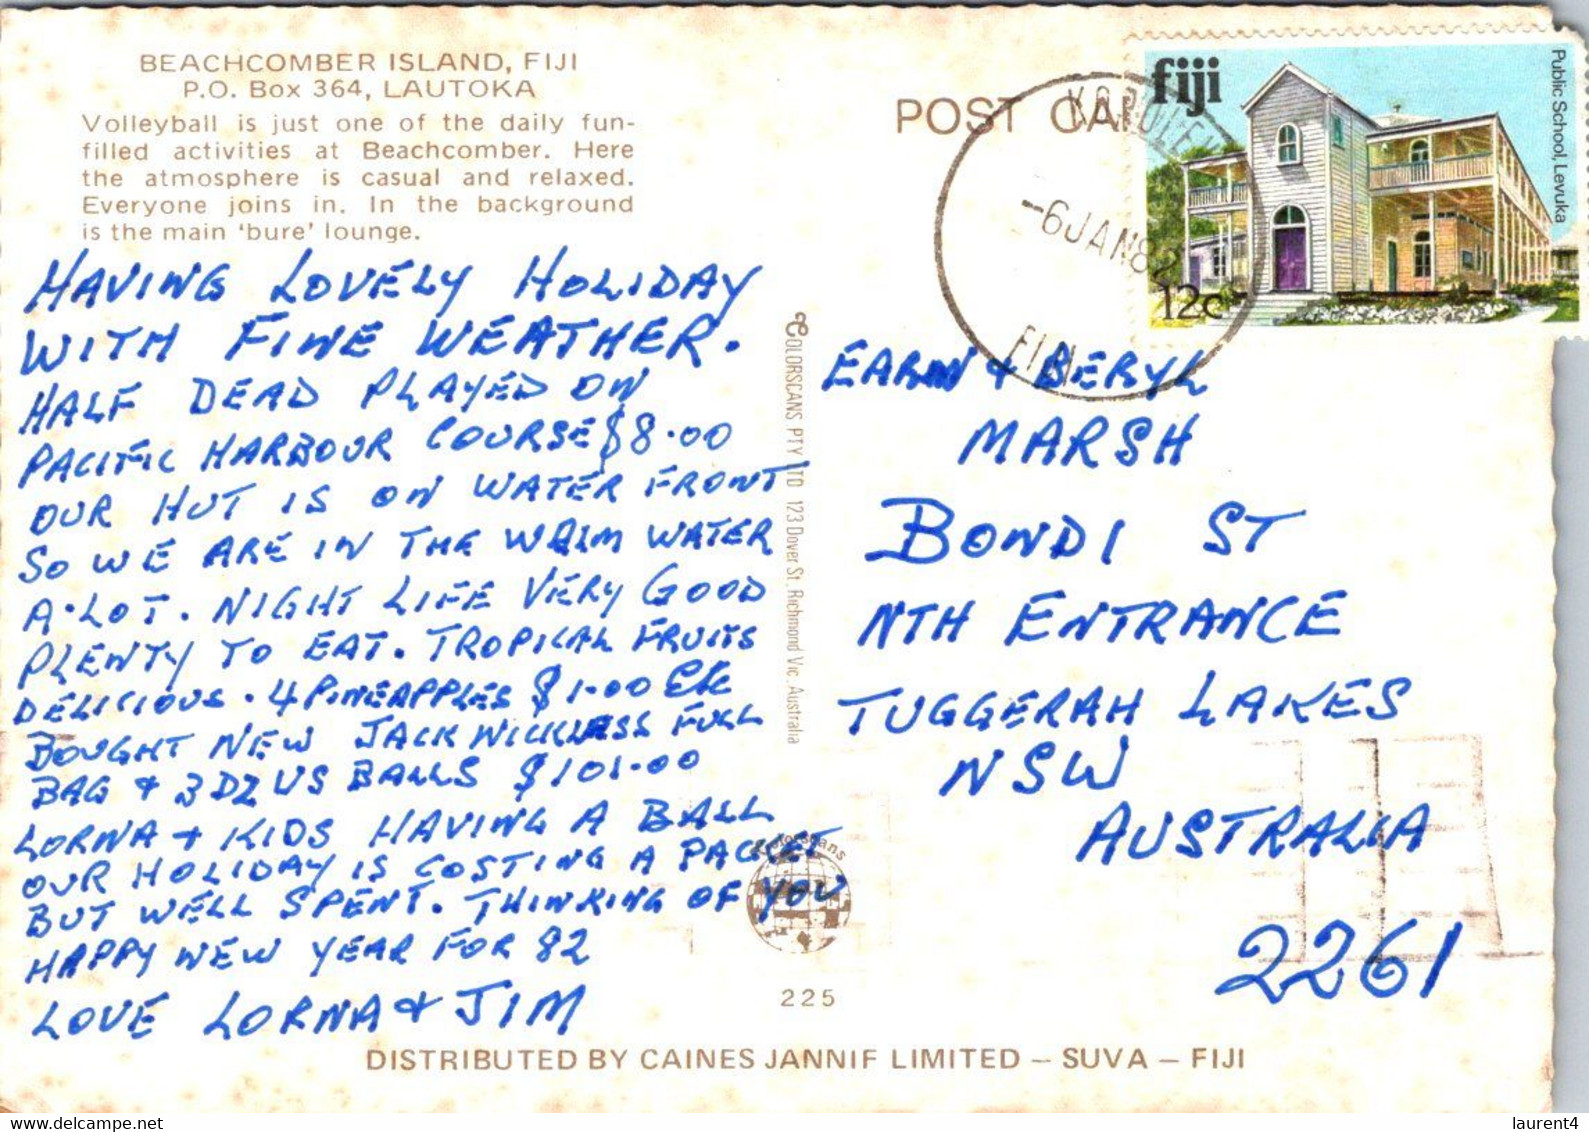 BEACHCOMBER ISLAND, FIJI
P.O. Box 364, LAUTOKA
Volleyball is just one of the daily fun-
filled activities at Beachcomber. Here
the atmosphere is casual and relaxed.
Everyone joins in. In the background
is the main 'bure' lounge.
HAVING LOVELY HOLIDAY
WITH FINE WEATHER.
HALF DEAD PLAYED ON
PACIFIC HARBOUR COURSE $8.00
OUR HUT IS ON WATER FRONT
SO WE ARE IN THE WARM WATER
A.LOT. NIGHT LIFE VERY GOOD
PLENTY TO EAT. TROPICAL FRUITS
DELICIOUS. 4 PINEAPPLES $1.00 Etc
BOUGHT NEW JACK NICKLESS FULL
BAG & 3 DZ US BALLS $101.00
LORNA + KIDS HAVING A BALL
OUR HOLIDAY IS COSTING A PACKET
BUT WELL SPENT. THINKING OF YOU
HAPPY NEW YEAR FOR 82
LOVE LORNA & JIM
POST CAR
fiji
Public School, Levuka
12c
-6JAN82
FIJI
COLORSCANS PTY LTD 123 Dover St. Richmond Vic. Australia
& BERYL
MARSH
BONDI ST
NTH ENTRANCE
TUGGERAH LAKES
NSW
AUSTRALIA
2261
Colorscans
225
DISTRIBUTED BY CAINES JANNIF LIMITED – SUVA – FIJI
laurent4